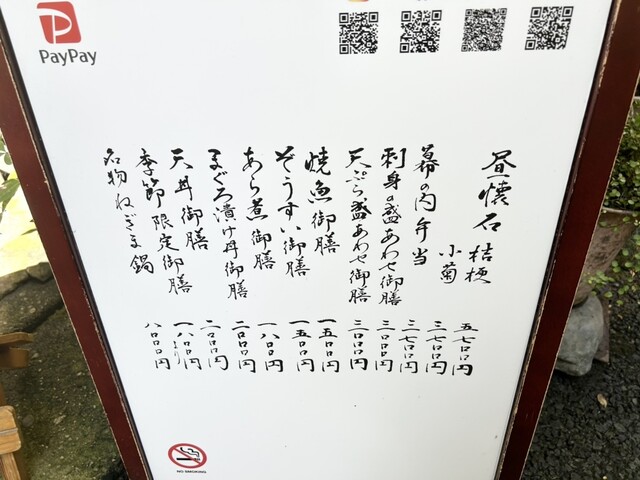 PayPay
昼懐石 桔梗 五七〇〇円
小菊 三七〇〇円
幕の内弁当 三七〇〇円
刺身の盛あわせ御膳 三〇〇〇円
天ぷら盛あわせ御膳 三〇〇〇円
焼魚御膳 一五〇〇円
ぞうすい御膳 一五〇〇円
あら煮御膳 一八〇〇円
まぐろ漬け丼御膳 二〇〇〇円
天丼御膳 二〇〇〇円
季節限定御膳 一八〇〇円より
名物ねぎま鍋 八〇〇〇円
NO SMOKING